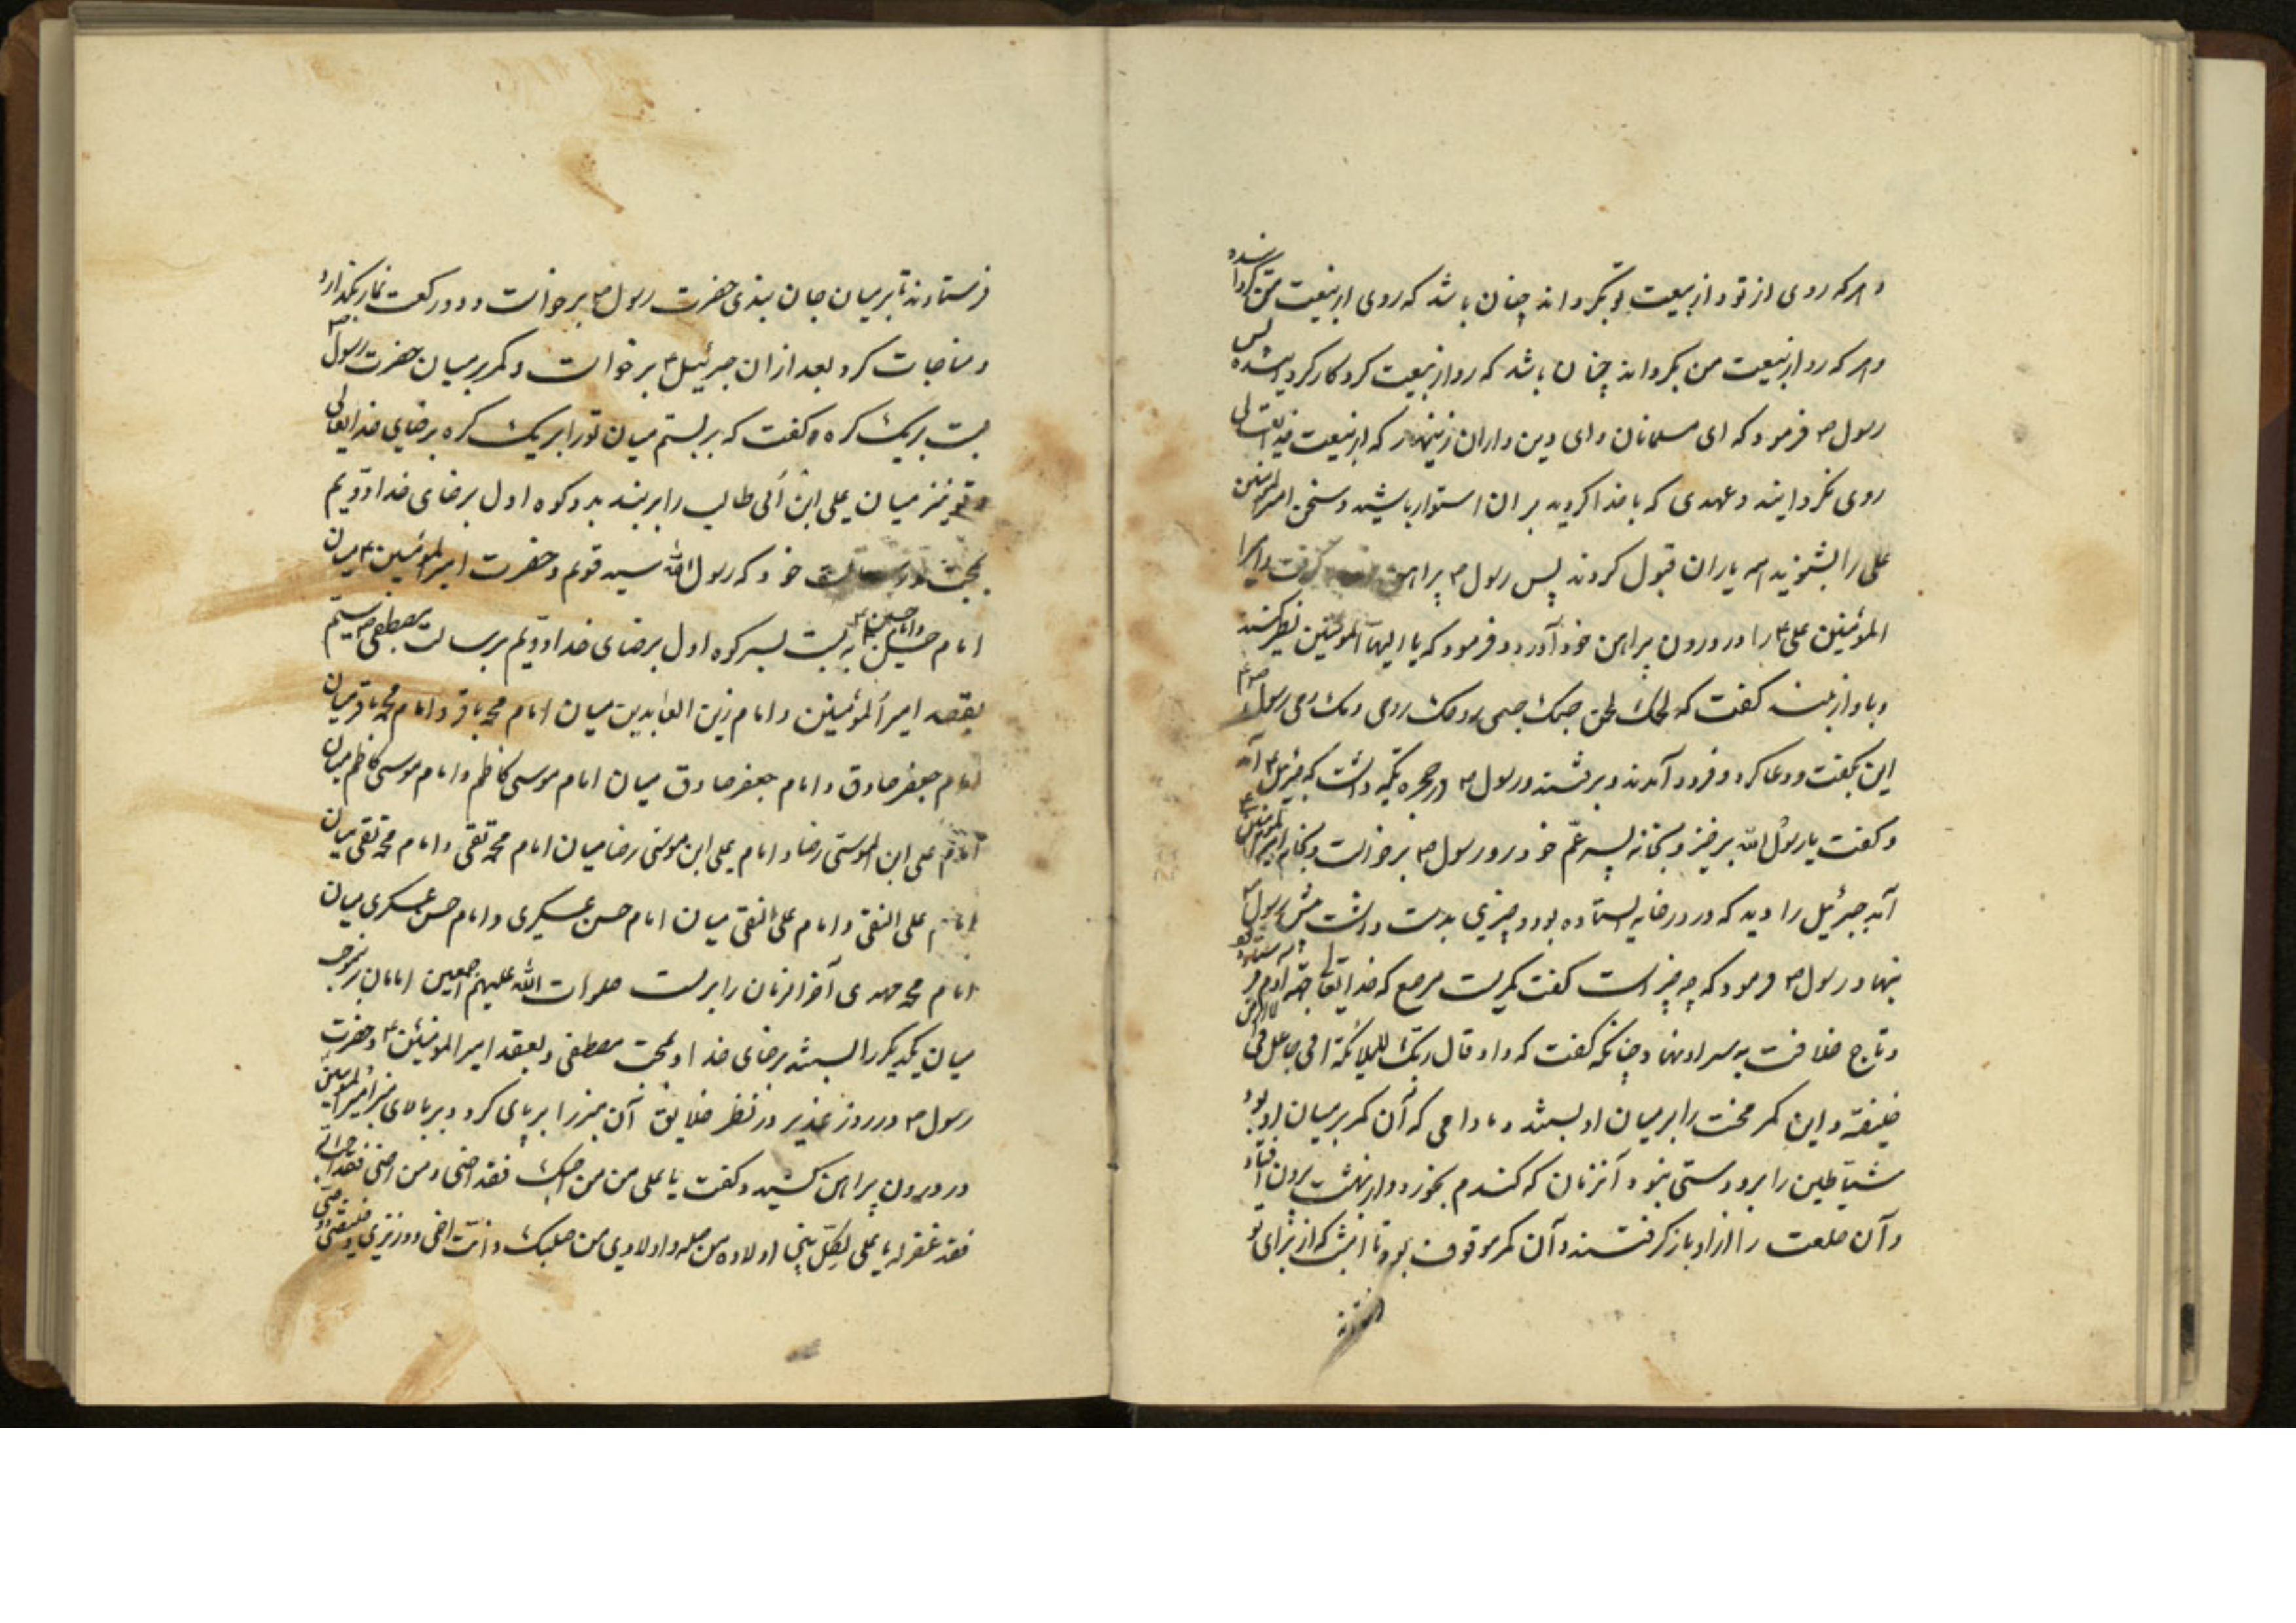 و هر که روی از تو و از بیعت تو بگرداند چنان باشد که روی از بیعت من گردانیده
و هر که رو از بیعت من بگرداند چنان باشد که رو از بیعت کردکار گردانیده پس
رسول فرمود که ای مسلمانان و ای دین داران زینهار که از بیعت خدایتعالی
روی نگردانید و عهدی که با خدا کردید بر ان استوار باشید و سخن امیرالمؤمنین
علی را بشنوید همه یاران قبول کردند پس رسول پیراهن گرفت و امیر
المؤمنین علی را در درون پیراهن خود آورد و فرمود که یا ایها المؤمنین نظر کنید
و باواز بلند گفت که لحمک لحمی جسمک جسمی دمک دمی روحک روحی رسول
این بگفت و دعا کرد و فرود آمدند و برفتند و رسول در حجره تکیه داشت که جبرئیل آمد
و گفت یا رسول الله برخیز و بخانه پسر عم خود رو رسول برخواست و بخانه امیرالمؤمنین
آمد جبرئیل را دید که در درخانه ایستاده بود و چیزی بدست داشت پیش رسول
بنهاد رسول فرمود که چه چیز است گفت کمریست مرصع که خدایتعالی جهة آدم فرستاده بود
و تاج خلافت به سر او نهاد چنانکه گفت که و اذ قال ربک للملائکة انی جاعل فی الارض
خلیفة و این کمر محنت را بر میان او بستند و مادامی که آن کمر بر میان او بود
شیاطین را برو دستی نبود آنزمان که کندم بخورد و از بهشت بیرون افتاد
و آن خلعت را از او باز کرفتند و آن کمر موقوف بود تا امشب که از برای تو
فرستادند تا بر میان جان ببندی حضرت رسول برخواست و دو رکعت نماز بگذارد
و مناجات کرد بعد از ان جبرئیل برخواست و کمر بر میان حضرت رسول
بست بریک کره و گفت که بر بستم میان تو را بریک کره برضای خدایتعالی
تو نیز میان علی ابن ابی طالب را بر بند بدو کوه اول برضای خدا و دویم
بمحبت و رسالت خود که رسول الله سید قوم و حضرت امیرالمؤمنین میان
امام حسن و امام حسین به بست بسه کوه اول برضای خدا و دویم برسالت مصطفی سیم
بعقد امیرالمؤمنین و امام زین العابدین میان امام محمد باقر و امام محمد باقر میان
امام جعفر صادق و امام جعفر صادق میان امام موسی کاظم و امام موسی کاظم میان
امام علی ابن الموسی رضا و امام علی ابن موسی رضا میان امام محمد تقی و امام محمد تقی میان
امام علی النقی و امام علی النقی میان امام حسن عسکری و امام حسن عسکری میان
امام محمد مهدی آخر الزمان را بربست صلوات الله علیهم اجمعین امامان بر موجب
میان یکدیگر را بستند برضای خدا و بمحبت مصطفی و بعقد امیر المومنین و حضرت
رسول در روز غدیر در نظر خلایق آن منبر را بر پای کرد و بر بالای منبر امیرالمؤمنین
در درون پیراهن کشید و گفت یا علی من من احبک فقد احبنی و من احبنی فقد احب الله
فقد غفر له یا علی لکل بنی اولاده من صلبه و اولادی من صلبک و انت اخی و وزیری و خلیفتی